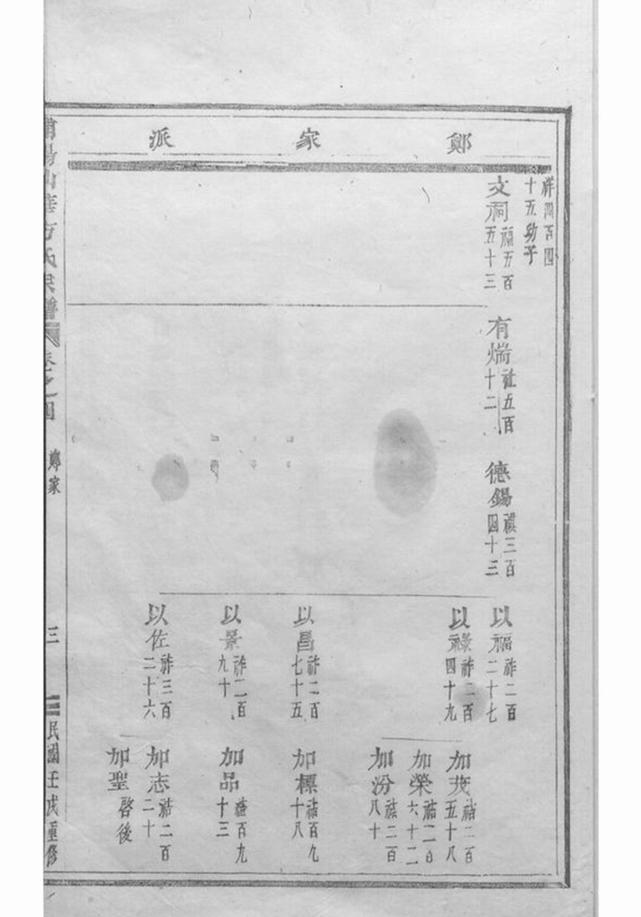 鄭家派
祥四百四十五幼子
文祠 福五百五十三
有煓 社五百十二
德錫 禩三百四十三
以福 祚二百二十七
以祿 祚二百四十九
以昌 祚二百七十五
以景 祚二百九十
以佐 祚三百二十六
加茂 祜二百五十八
加榮 祜二百六十二
加汾 祜二百八十
加標 祜百九十八
加品 祜百九十三
加志 祜二百二十
加聖 啓後
山華方氏宗譜
卷之四
鄭家
三
民國壬戌重修